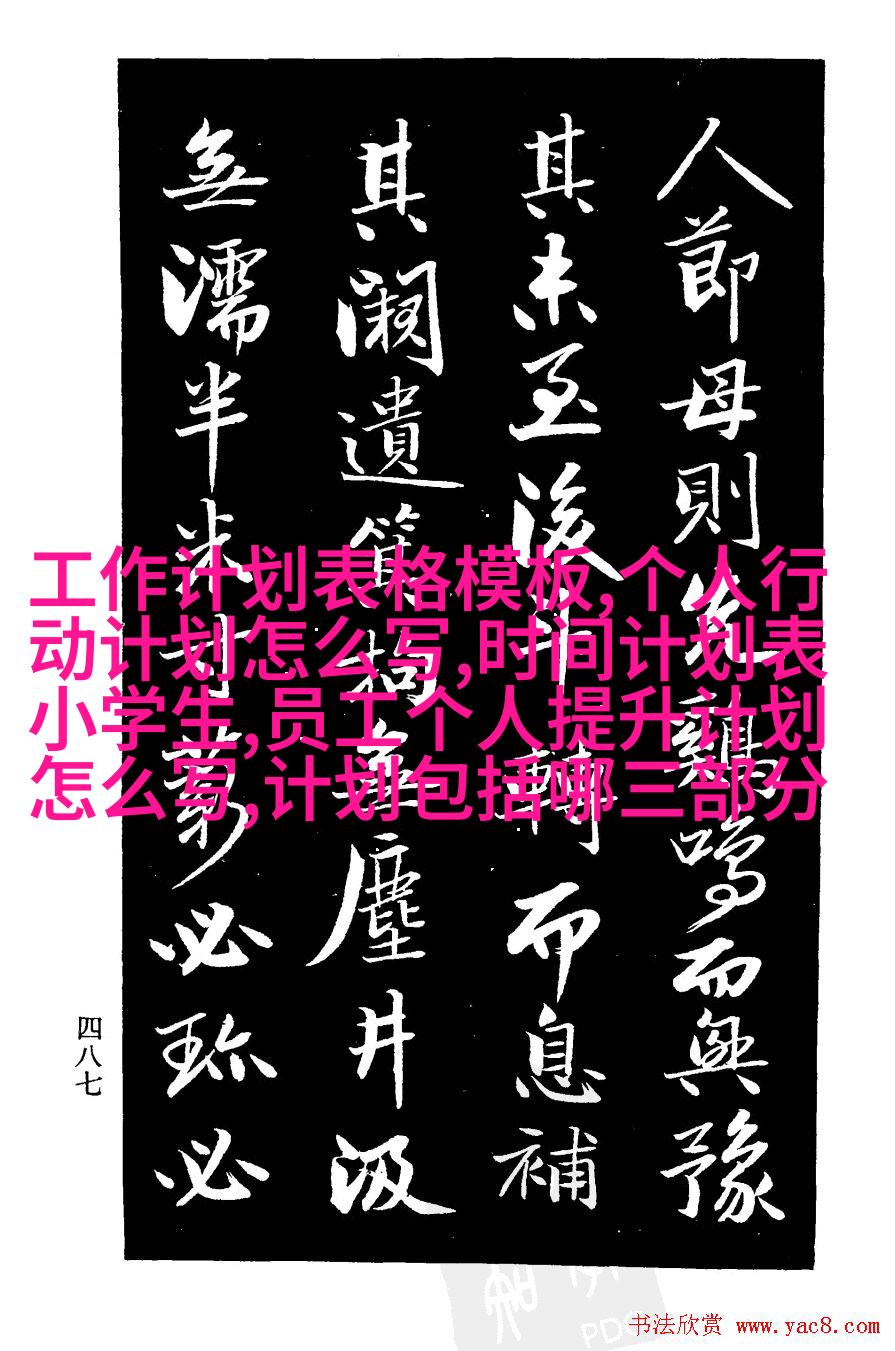 人節母則先鷄鳴而興豫
其未至後斗轉而息補
其闕遺無塵井汲
無濡半米寸薪必珎必
四八七
工作计划表格模板,个人行
动计划怎么写,时间计划表
小学生,员工个人提升计划
怎么写,计划包括哪三部分
PDG
书法欣赏 www.yac8.com